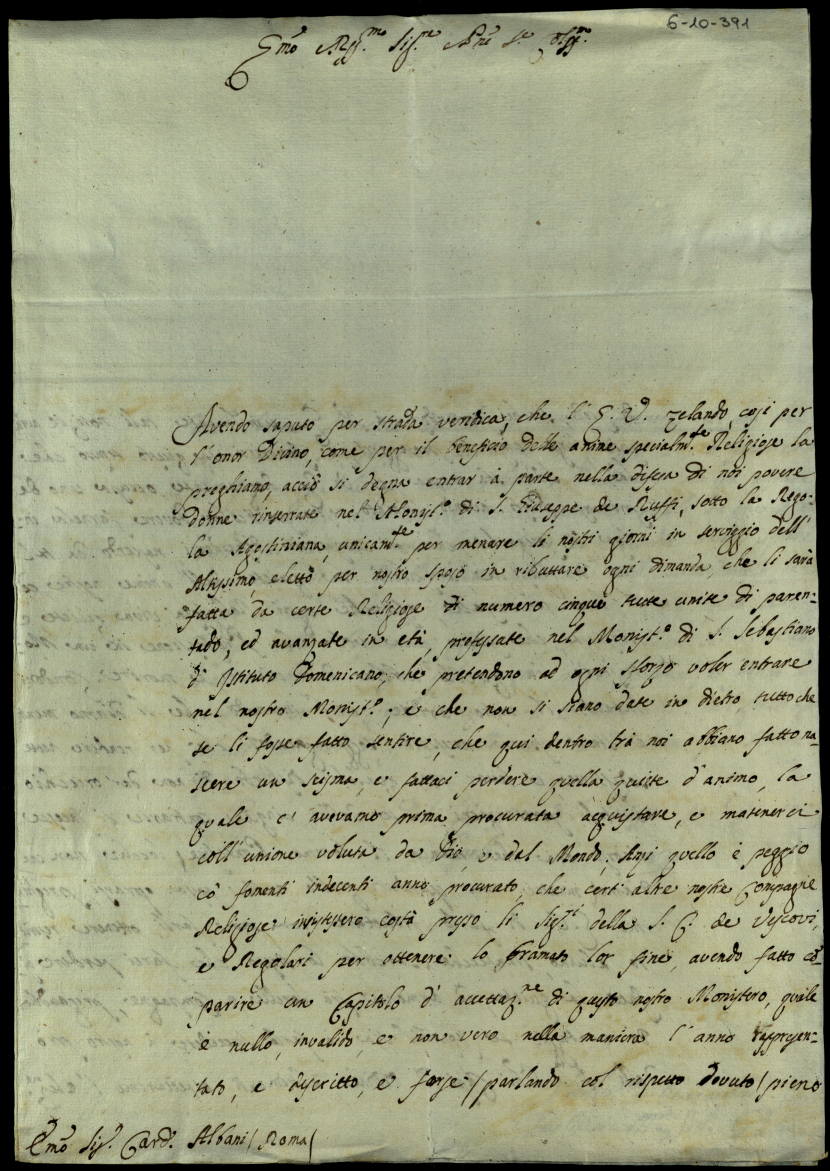 6-10-391
Emo Rmo Sig.re Prne
Avendo saputo per strada veridica, che l'E. V. zelando, così per
l'onor Divino, come per il beneficio delle anime specialm.te Religiose la
preghiamo, acciò si degna entrar à parte nella difesa di noi povere
donne rinserrate nel Monist.o di S. Giuseppe de Ruffi, sotto la Rego-
la Agostiniana, unicam.te per menare li nostri giorni in serviggio dell'
Altissimo, eletto per nostro sposo in ributtare ogni dimanda, che li sarà
fatta da certe Religiose di numero cinque tutte unite di paren-
tado, ed avanzate in età, professate nel Monist.o di S. Sebastiano
d'Istituto Domenicano, che pretendono ad ogni sforzo voler entrare
nel nostro Monist.o; e che non si siano date in dietro, tutto che
se li fosse fatto sentire, che qui dentro trà noi abbiano fatto na-
scere un scisma, e fattaci perdere quella quiete d'animo, la
quale c'avevamo prima procurata acquistare, e matenerci
coll'unione voluta da Dio, e dal Mondo. Anzi quello è peggio
cò fomenti indecenti anno procurato, che certi altre nostre Compagne
Religiose insistessero costà presso li Sig.ri della S. C. de Vescovi,
e Regolari per ottenere lo bramato lor fine, avendo fatto cō-
parire un Capitolo d'accettaz.ne di questo nostro Monistero, quale
è nullo, invalido, e non vero nella maniera l'anno rappresen-
tato, e descritto, e forse /parlando col rispetto dovuto/ pieno
Emo Sig. Card. Albani /Roma/